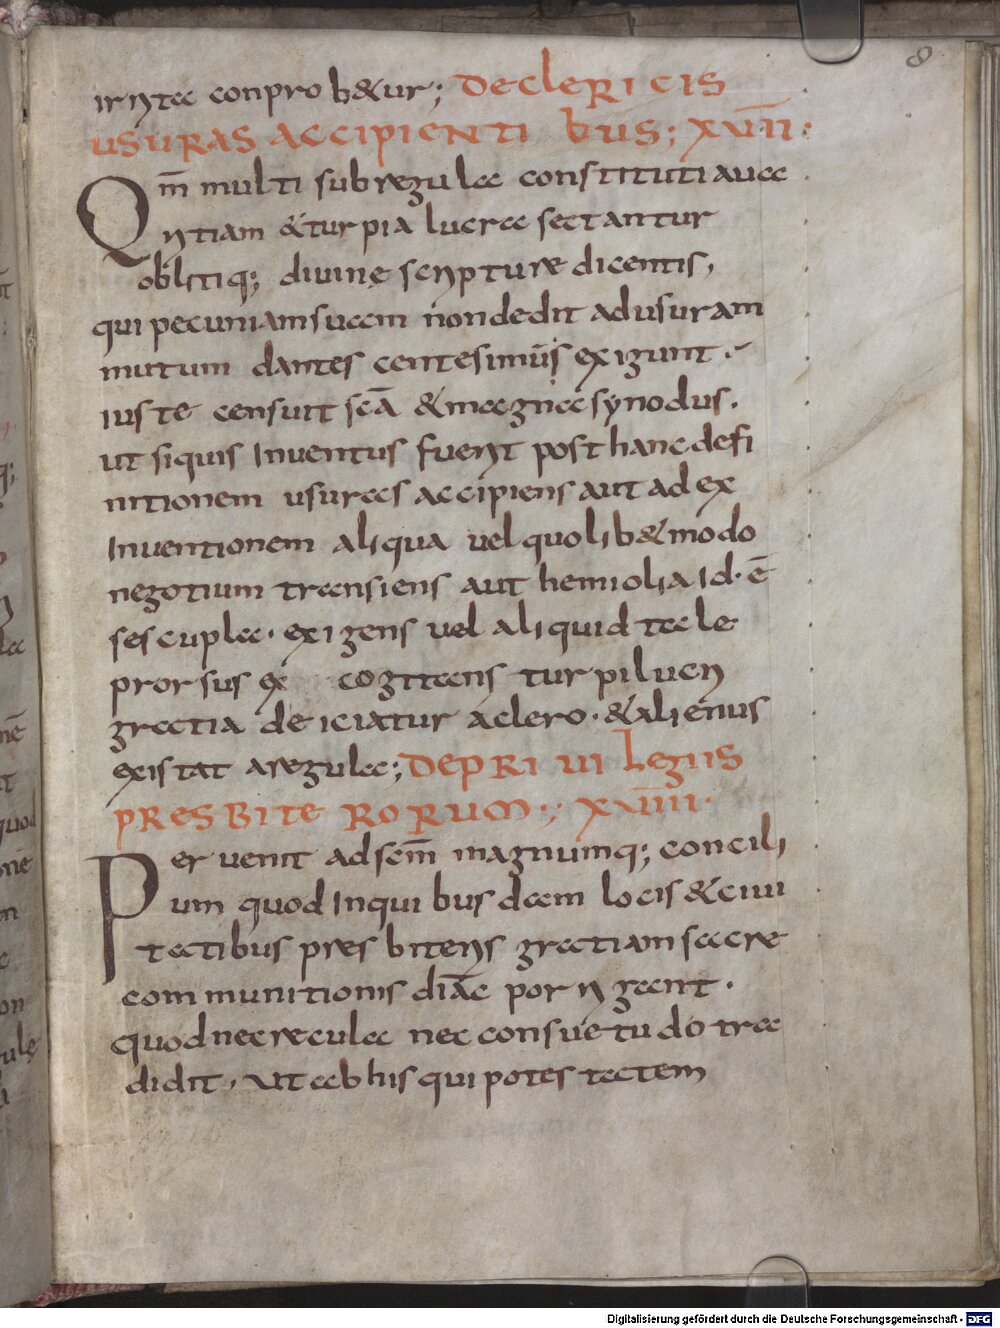 8
irrita conprobetur; DE CLERICIS
USURAS ACCIPIENTIBUS; XVIII:
Qm̅ multi sub regula constituti aua
ritiam & turpia lucra sectantur
oblitiq; diuinę scripture dicentis,
qui pecuniam suam non dedit ad usuram
mutum dantes centesimus̅ exigunt.
iuste censuit sc̅a & magna synodus.
ut siquis Inuentus fuerit post hanc defi
nitionem usuras accipiens aut ad ex
Inuentionem aliqua uel quolib& modo
negotium transiens aut hemiolia Id. e̅
sescupla. exigens uel aliquid tale
prorsus ex cogitans turpi lucri
gratia deiciatur a clero. & alienus
existat a regula; DE PRIUILEGIIS
PRESBITERORUM.; XVIIII.
Peruenit ad sc̅m̅ magnumq; concili
um quod In quibusdam locis & ciui
tatibus presbiteris gratiam sacre
communitionis diac̅ porrigant.
quod nec recula nec consuetudo tra
didit, ut ab his qui potestatem
Digitalisierung gefördert durch die Deutsche Forschungsgemeinschaft - DFG